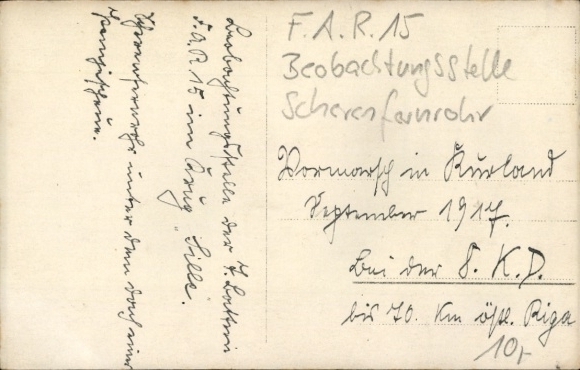 Beobachtungsstelle der 7. Batterie
F.A.R 15 im Krug "Sille".
Scherenfernrohr unter dem Dach einer
F.A.R.15
Beobachtungsstelle
Scherenfernrohr
Vormarsch in Kurland
September 1917.
Bei der 8. K.D.
bis 70. Km östl. Riga
10,-